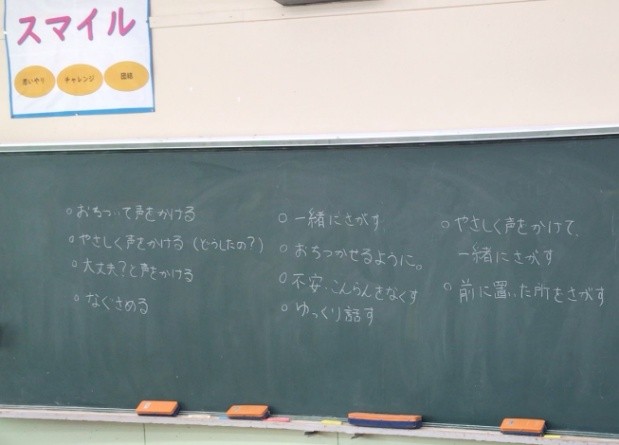 スマイル
思いやり
チャレンジ
団結
○おちついて声をかける
○やさしく声をかける（どうしたの？）
○大丈夫？と声をかける
○なぐさめる
○一緒にさがす
○おちつかせるように。
○不安・こんらんをなくす
○ゆっくり話す
○やさしく声をかけて、
一緒にさがす
○前に置いた所をさがす